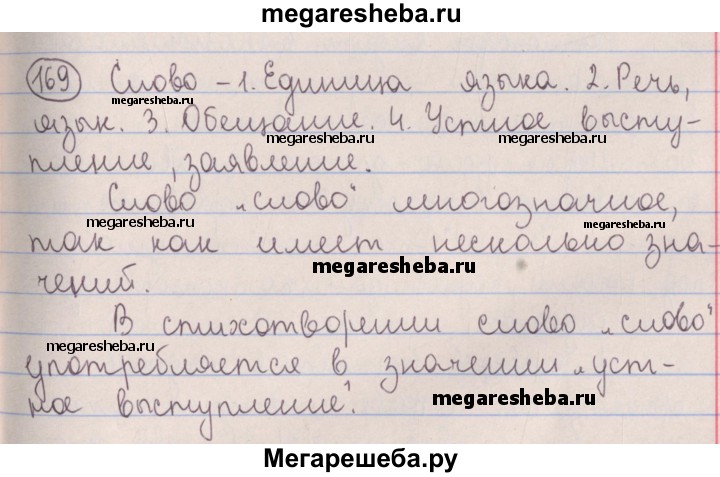 megaresheba.ru
169 Слово – 1. Единица языка. 2. Речь,
megaresheba.ru
язык. 3. Обещание. 4. Устное высту-
megaresheba.ru
megaresheba.ru
пление, заявление.
Слово „слово“ многозначное,
megaresheba.ru
megaresheba.ru
так как имеет несколько зна-
megaresheba.ru
чений.
В стихотворении слово „слово“
megaresheba.ru
megaresheba.ru
употребляется в значении „уст-
megaresheba.ru
ное выступление“.
Мегарешеба.ру